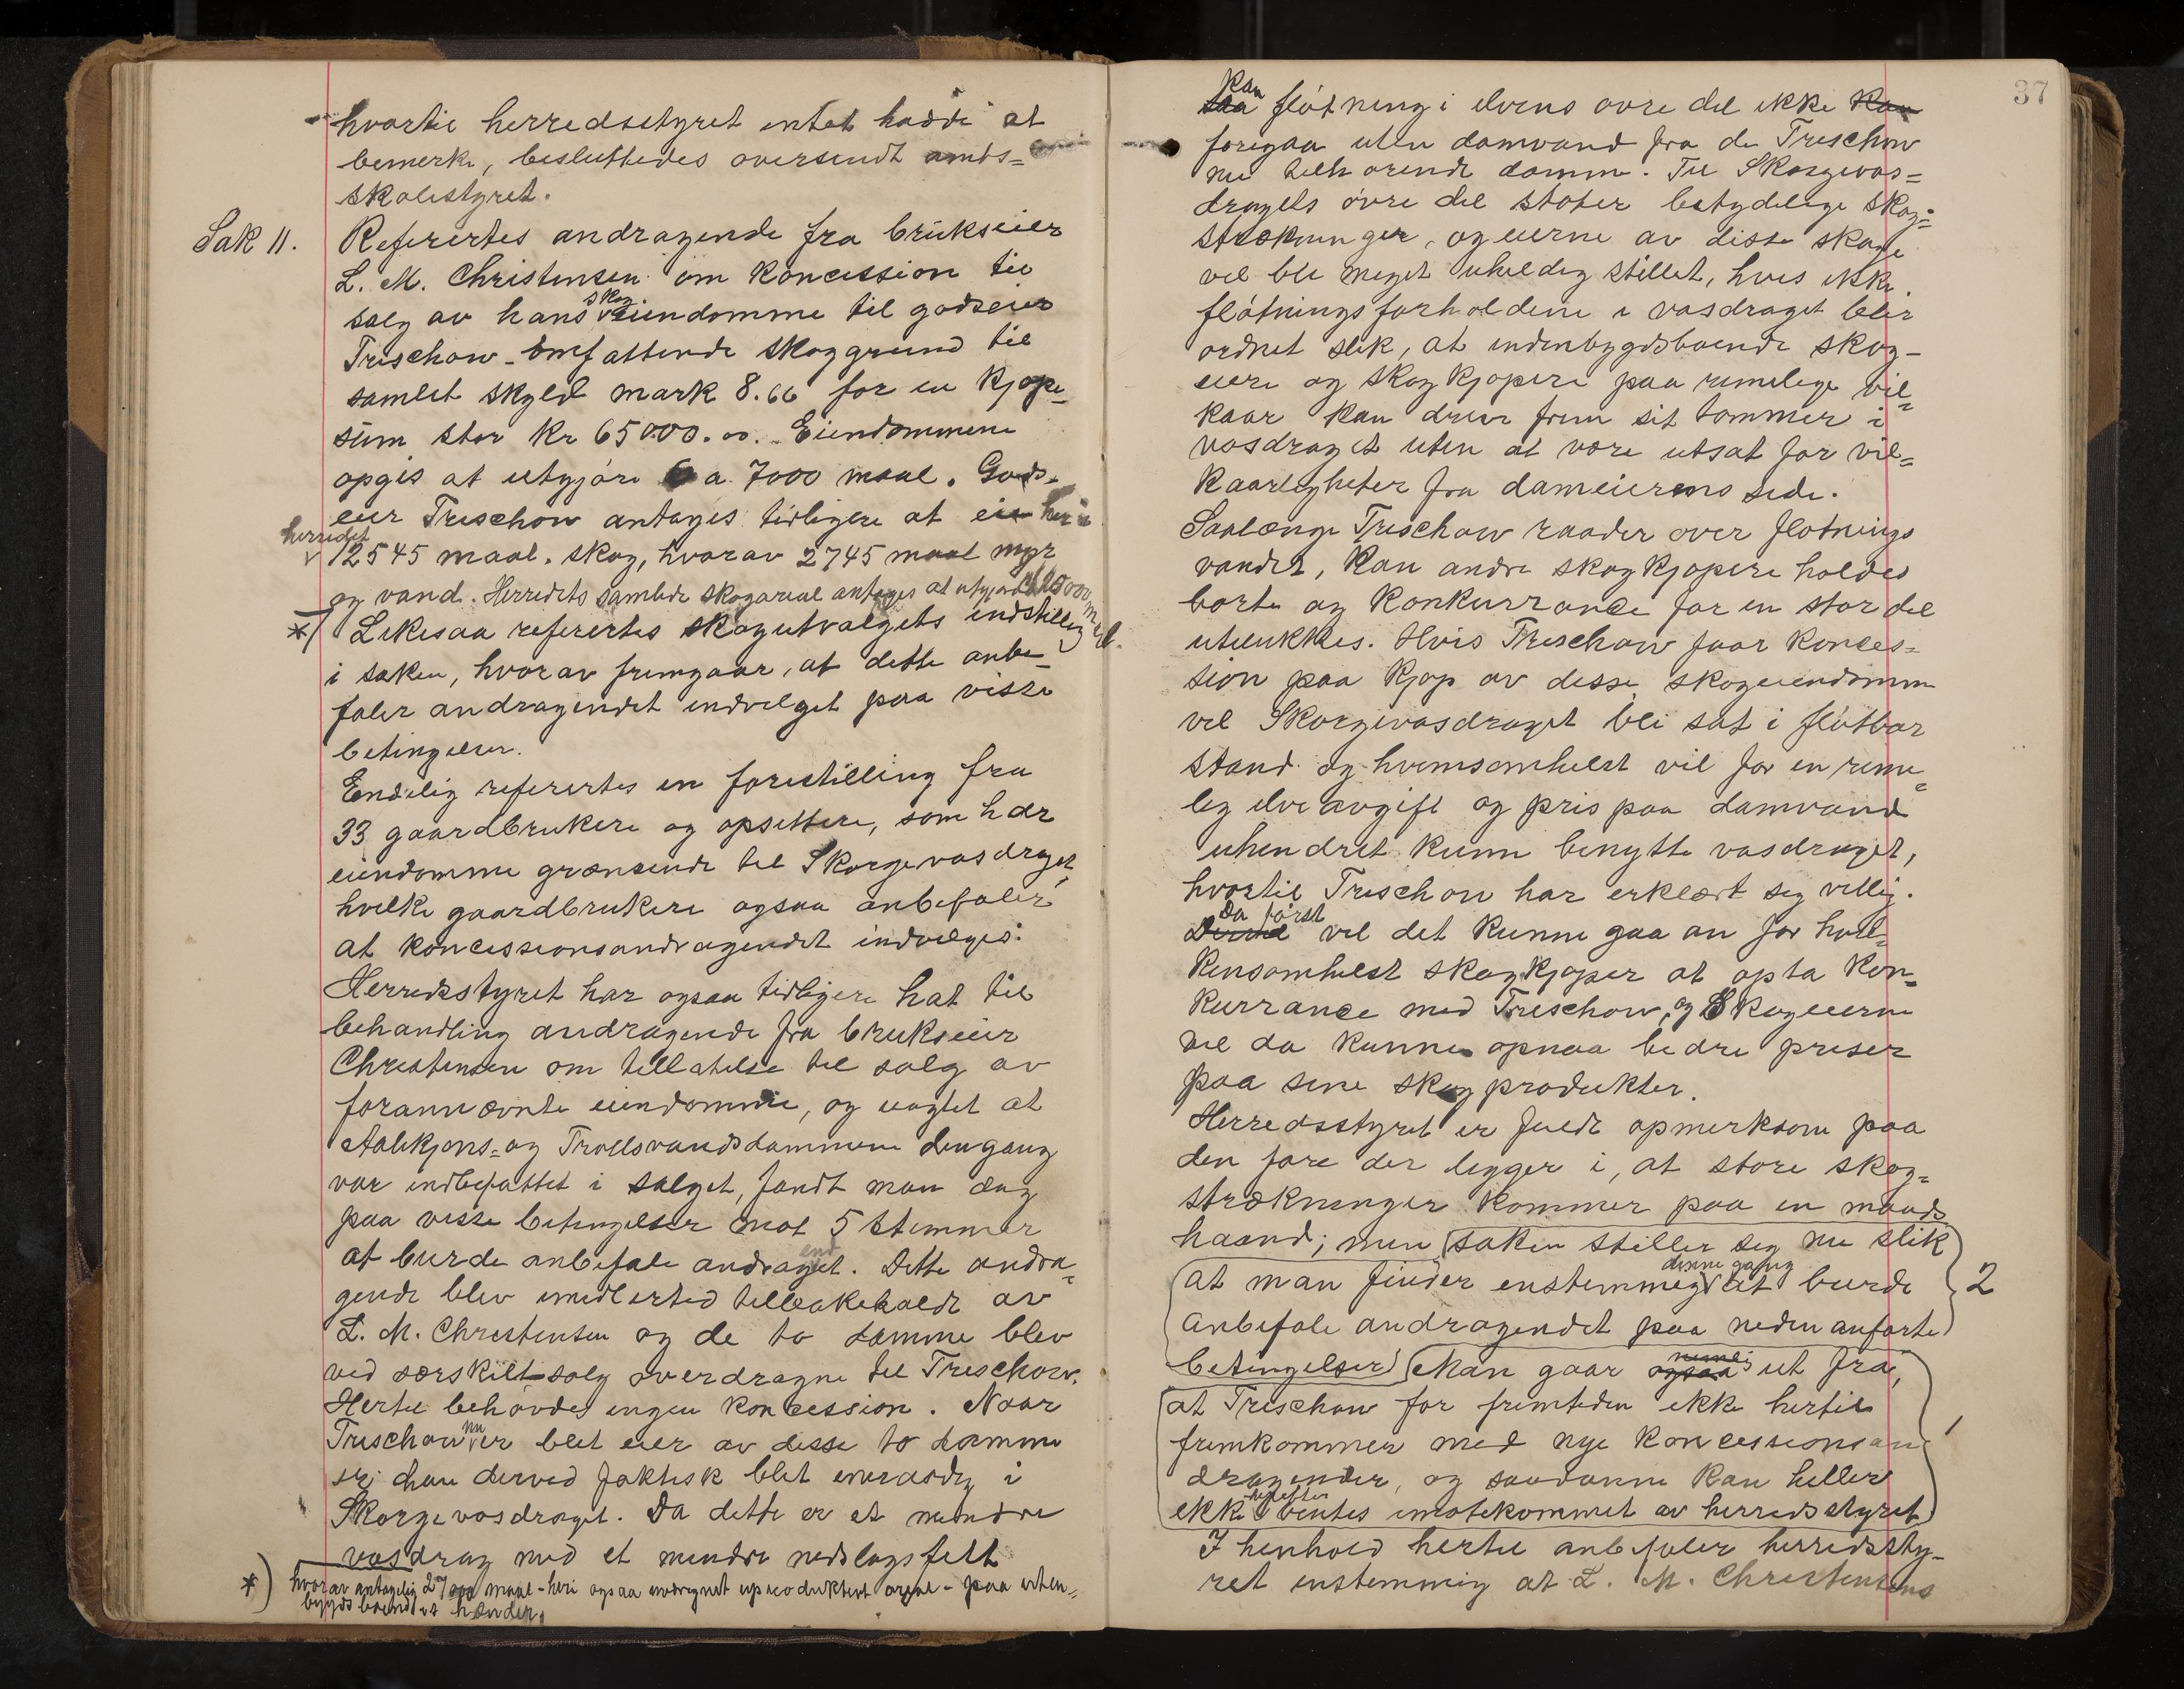 hvortil herredsstyret intet hadde at
bemerke, besluttedes oversendt amts=
skolestyret.
Sak 11. Refertes andragende fra brukseier
L. M. Christensen om koncession til
salg av hans skogeiendomme til godseier
Treschow omfattende skoggrund til
samlet skyld mark 8.66 for en kjøpe=
sum stor kr 65000.00. Eiendommene
opgis at utgjøre 6 a 7000 maal. Gods=
eier Treschow antages tidligere at eie her i
herredet 12545 maal skog, hvorav 2745 maal myr
og vand. Herredets samlede skogareal antages at utgjøre 
*) Likesaa refertes skogutvalgets indstilling
i saken, hvorav fremgaar, at dette anbe=
faler andragendet indvilget paa visse
betingelser.
Endelig refertes en forestilling fra
33 gaardbrukere og opsittere, som har
eiendomme grænsende til Skorgevasdraget,
hvilke gaardbrukere ogsaa anbefaler
at koncessionsandragendet indvilges.
Herredsstyret har ogsaa tidligere hat til
behandling andragende fra brukseier
Christensen om tillatelse til salg av
forannævnte eiendomme, og uagtet at
Aalekjøns= og Trollsvandsdammene dengang
var indbefattet i salget, fandt man dog
paa visse betingelser mot 5 stemmer
at burde anbefale andragendet. Dette andra=
gende blev imidlertid tilbakekaldt av
L. M. Christensen og de to damme blev
ved særskilt salg overdragne til Treschow.
Hertil behøvdes ingen koncession. Naar
Treschow nu er blet eier av disse to damme
er han derved faktisk blet eneraadig i
Skorgevasdraget. Da dette er et mindre
vasdrag med et mindre nedslagsfelt
*) hvorav antagelig 27000 maal - heri ogsaa medregnet uproduktivt areal - paa uten=
bygdsboendes hænder.
37
kan fløtning i elvens øvre del ikke kan
foregaa uten damvand fra de Treschow
nu tilhørende damme. Til Skorgevas=
dragets øvre del støter betydelige skog=
strækninger, og eierne av disse skoge
vil bli meget uheldig stillet, hvis ikke
fløtningsforholdene i vasdraget blir
ordnet slik, at indenbygdsboende skog=
eiere og skogkjøpere paa rimelige vil=
kaar kan drive frem sit tømmer i
vasdraget uten at være utsat for vil=
kaarligheter fra dameierens side.
Saalænge Treschow raader over fløtnings
vandet, kan andre skogkjøpere holdes
borte og konkurrance for en stor del
utelukkes. Hvis Treschow faar konces=
sion paa kjøp av disse skogeiendomme
vil Skorgevasdraget bli sat i fløtbar
stand og hvemsomhelst vil for en rime=
lig elveavgift og pris paa damvand
uhindret kunne benytte vasdraget,
hvortil Treschow har erklært sig villig.
Da først vil det kunne gaa an for hvil=
kensomhelst skogkjøper at opta kon=
kurrance med Treschow, og skogeierne
vil da kunne opnaa bedre priser
paa sine skogprodukter.
Herredsstyret er fuldt opmerksom paa
den fare der ligger i, at store skog=
strækninger kommer paa en mands
haand; men saken stiller sig nu slik
at man finder enstemmig denne gang at burde
anbefale andragendet paa nedenanførte
betingelser. Man gaar ogsaa nemlig ut fra, 2
at Treschow for fremtiden ikke hertil
fremkommer med nye koncessionsan 1
dragender, og saadanne kan heller
ikke herefter ventes imøtekommet av herredsstyret.
I henhold hertil anbefaler herredssty=
ret enstemmig at L. M. Christensens